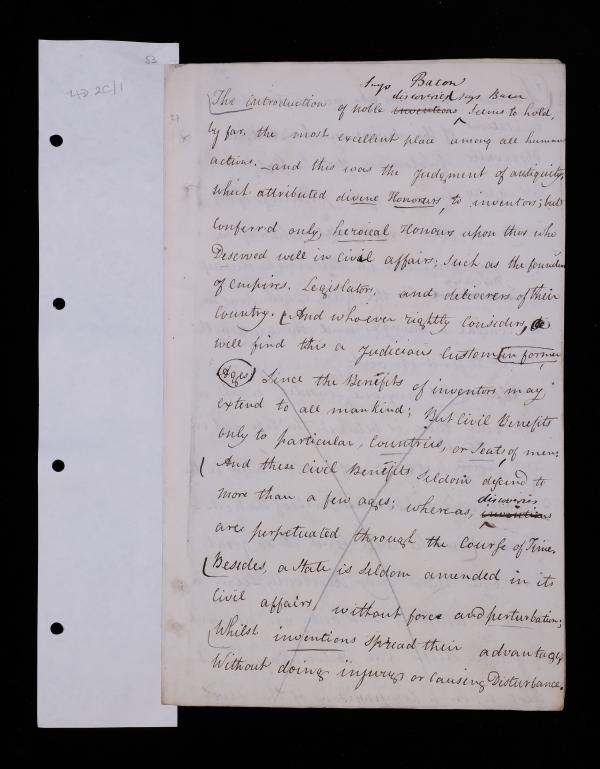 53
says Bacon
discoveries says Bacon
The introduction of noble inventions seems to hold,
by far, the most excellent place among all human
actions. _and this was the Judgment of antiquity,
which attributed divine Honours, to inventors; but
Conferr'd only heroical Honours upon thos who
Deserved well in Civil affairs; such as the founders
of empires. Legislators, and deliverers of their
Country. And whoever rightly Considers,
will find this a Judicious Custom in former
Ages; Since the Benefits of inventors may
extend to all mankind; But Civil Benefits
only to particular, Countries, or Seats, of men;
And these Civil Benefits Seldom descend to
more than a few ages; whereas, inventions
discoveries
are perpetuated through the Course of Time.
Besides, a State is Seldom amended in its
Civil affairs, without force and perturbation;
Whilst inventions spread their advantages
Without doing injurys or Causing Disturbance.